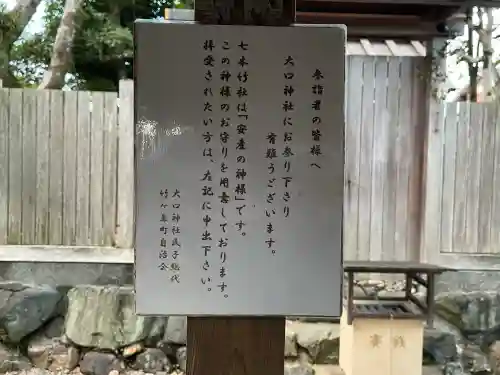 参詣者の皆様へ
大口神社にお参り下さり
有難うございます。
七本竹社は「安産の神様」です。
この神様のお守りを用意しております。
拝受されたい方は、左記に申出下さい。
大口神社氏子総代
竹ヶ鼻町自治会